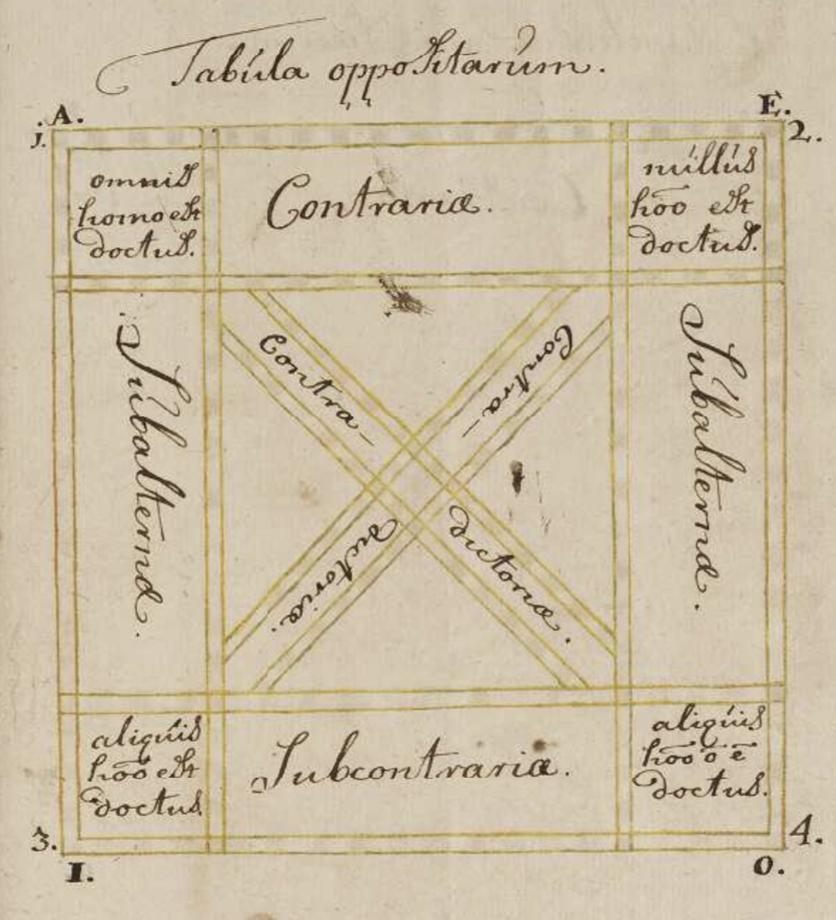 Tabúla oppositarúm.
A. E.
1. 2.
omnis
homo est
doctus.
Contrariæ.
núllús
hōō est
doctus.
Súbalternæ.
Contra-
dictoriæ.
Contra-
dictoriæ.
Súbalternæ.
aliqúis
hōō est
doctus.
Subcontrariæ.
aliqúis
hōō ō ē
doctus.
3. 4.
I. O.